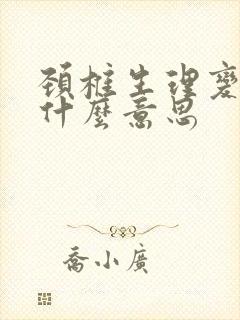 頚椎生理變
什麼意思
喬小廣